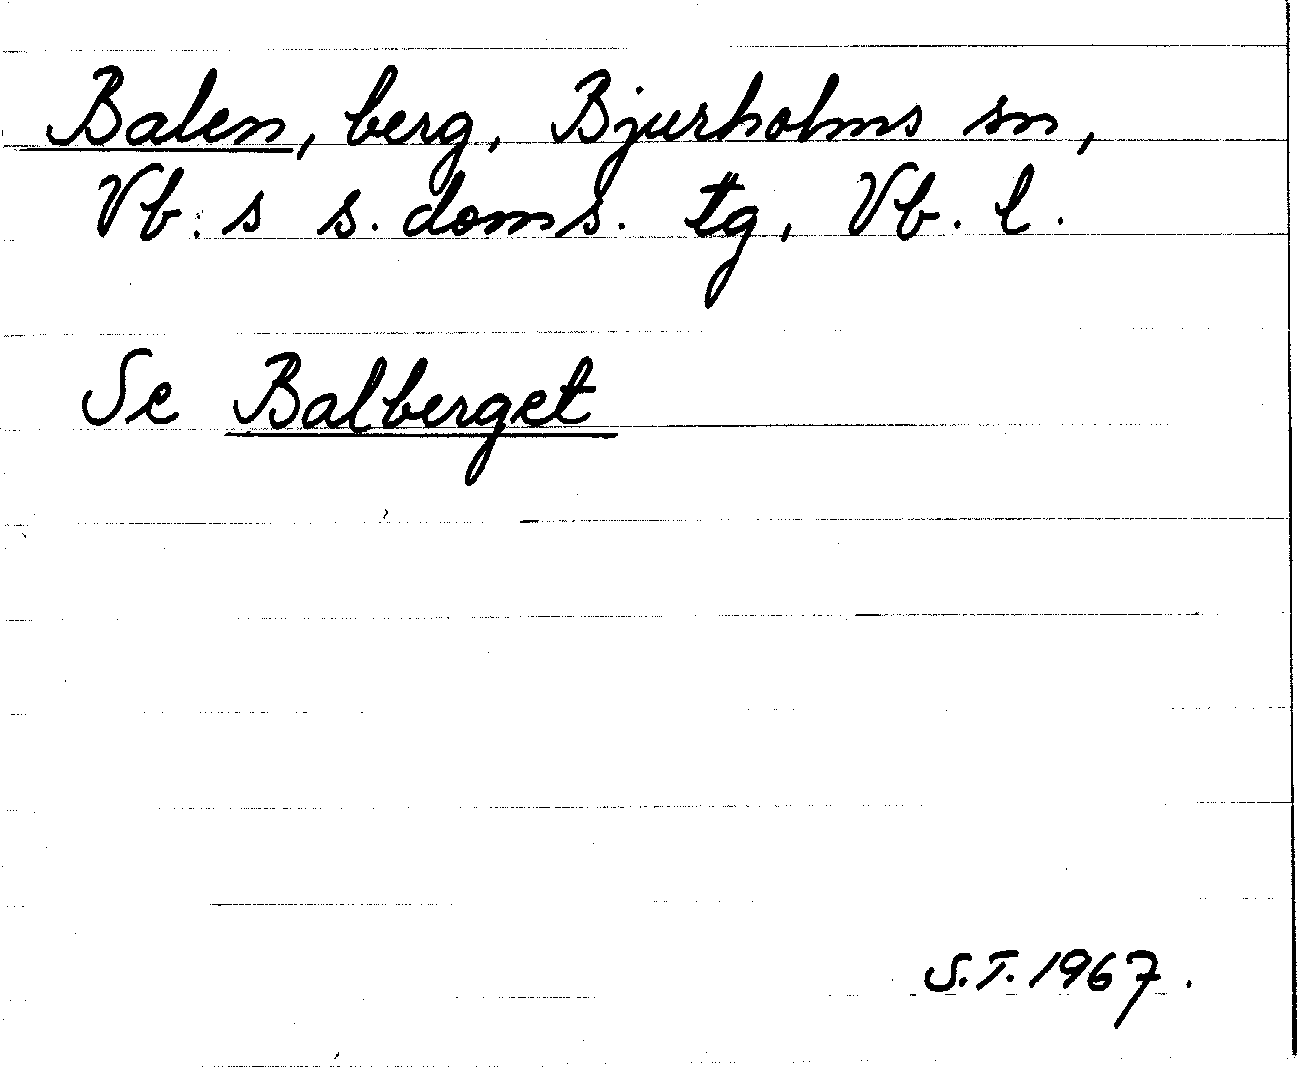 Balen, berg, Bjurholms sn,
Vb:s s. doms. tg, Vb. l.
Se Balberget
S.T. 1967.